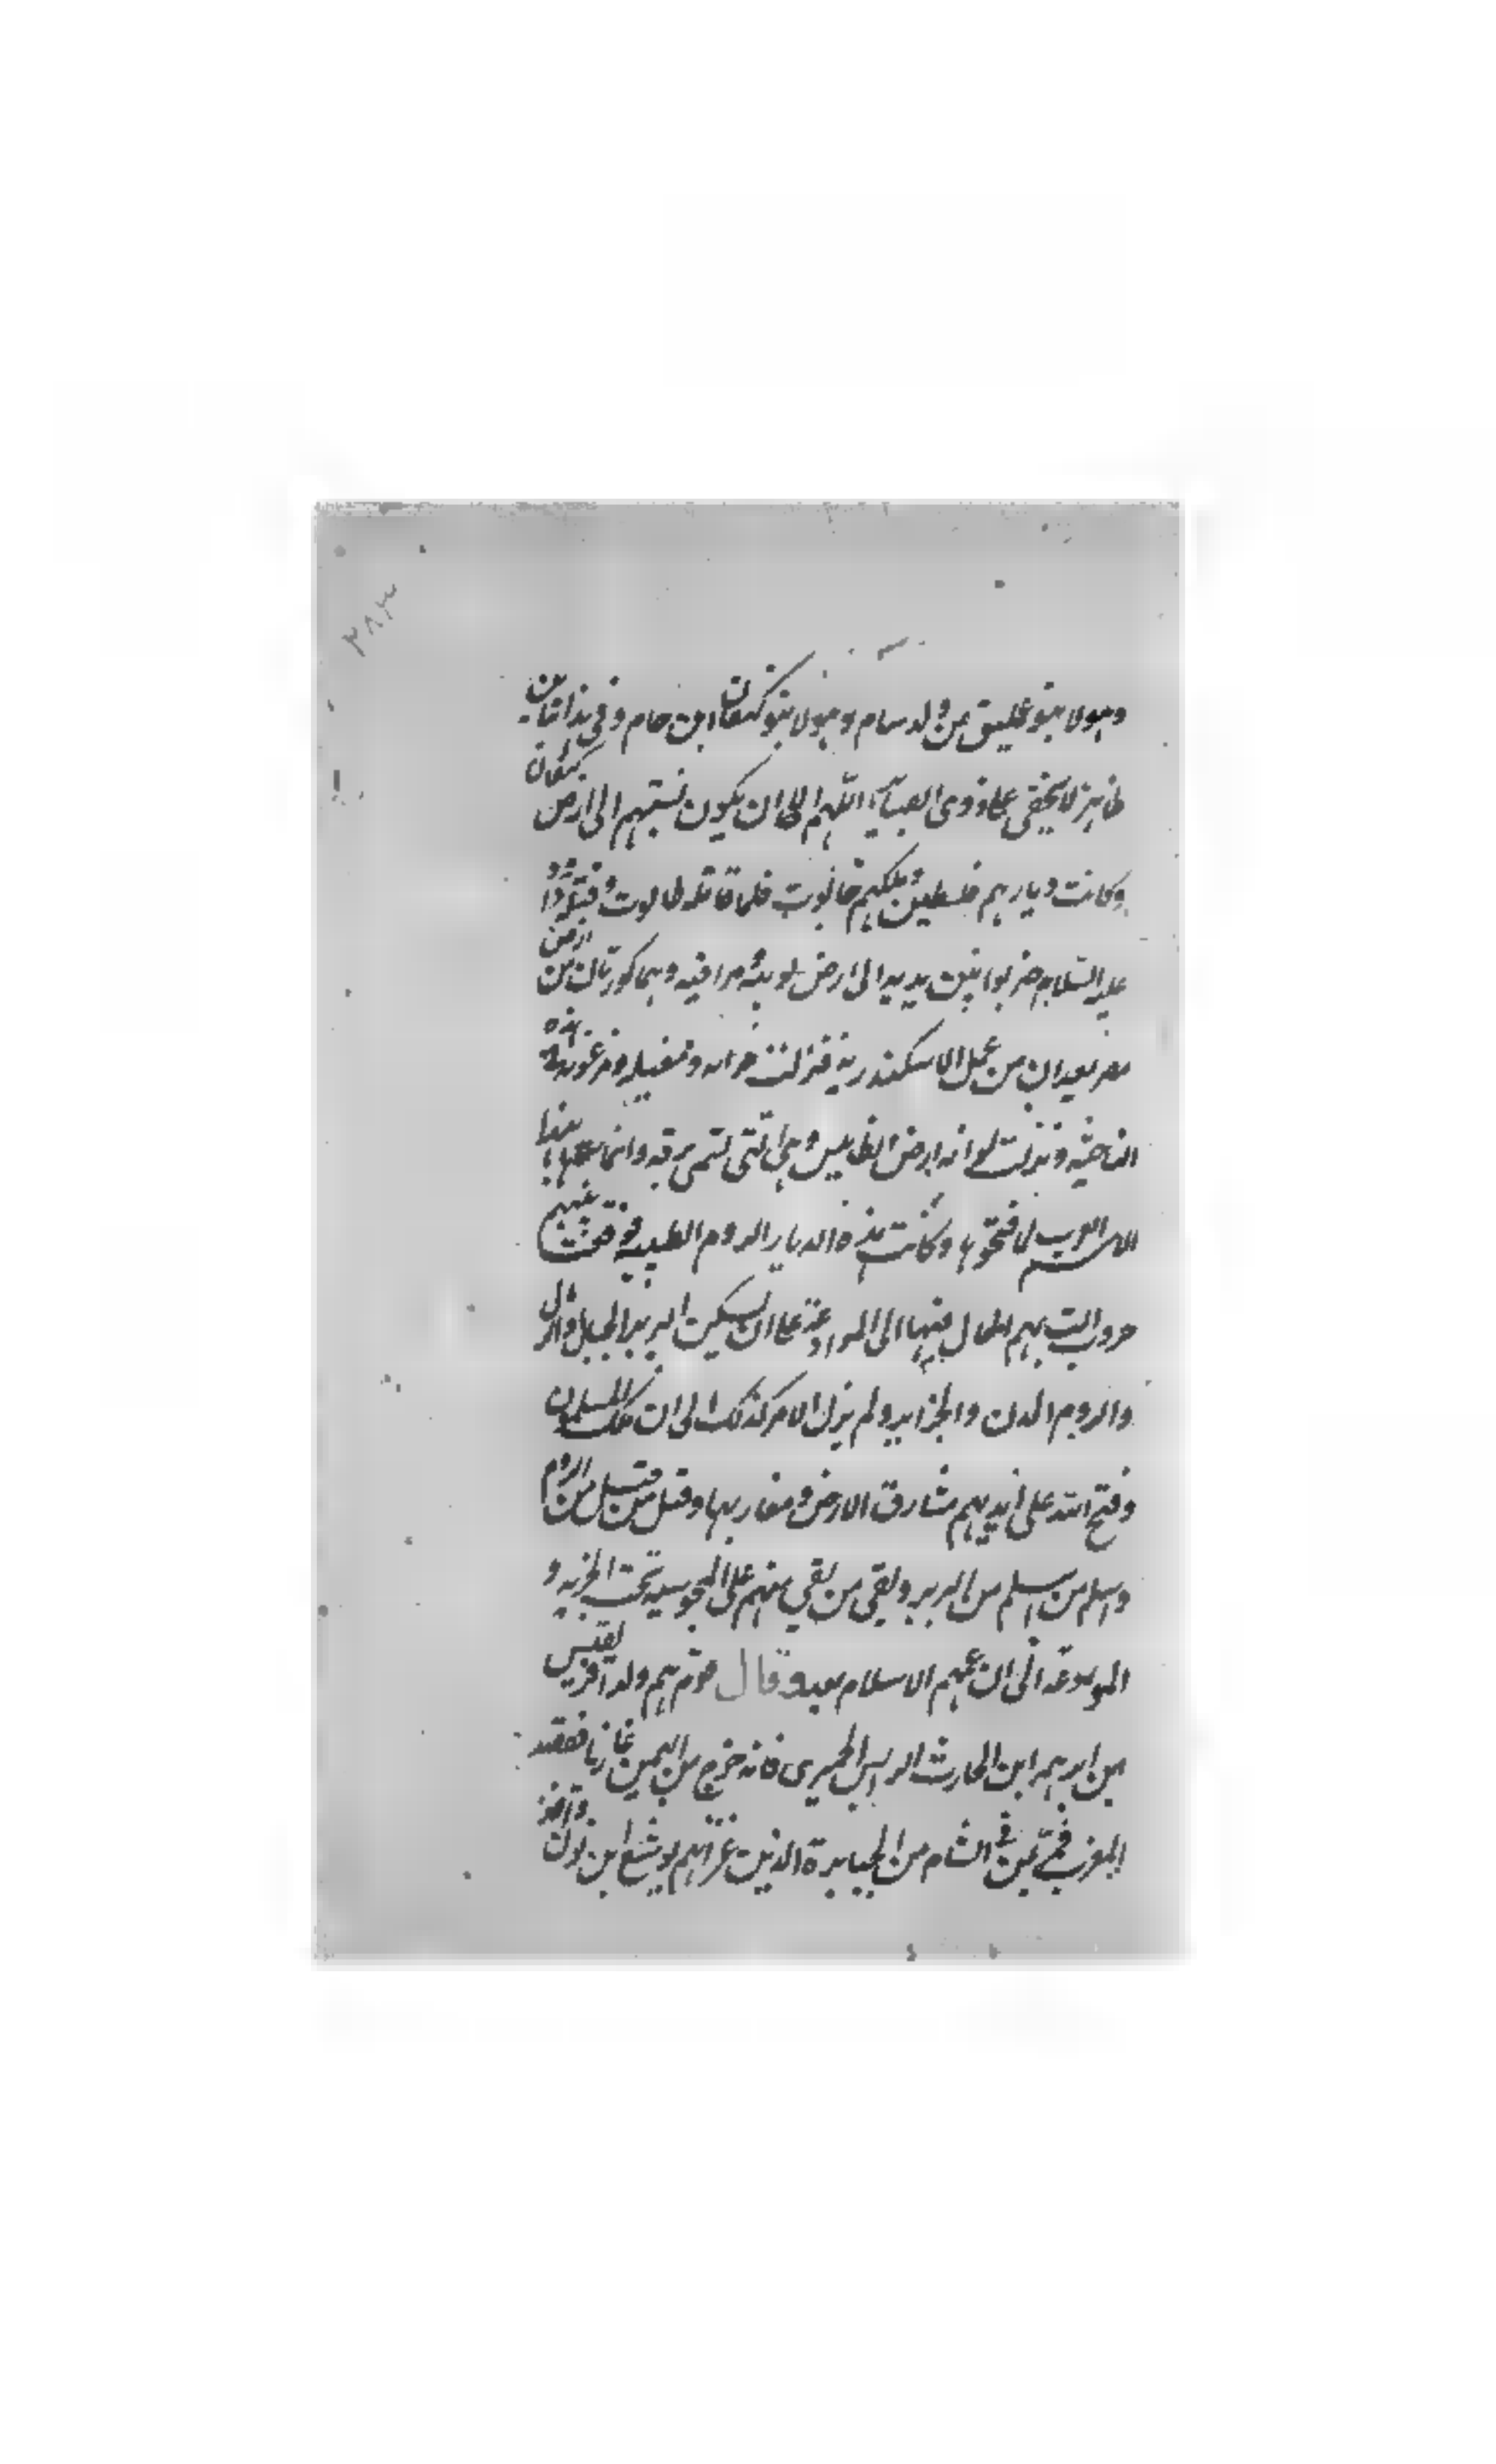 ٢٨٣
وهولا بنو عمليق من ولد سام وهولا بنو كنعان ابن حام وفي هذا تباين
ظاهر لا يخفى على ذوى الصبا اللهم الا ان يكون نسبتهم الى ارض كنعان
وكانت ديارهم فلسطين وملكهم جالوت فلما قاتله طالوت وقتله داود
عليه السلام ضربوا بين يديه الى ارض لوبيه ومراقيه وهما كورتان من ارض
مصر بعدان من عمل الاسكندرية فنزلت هذه
الناحية ونزلت لواته ارض انطابلس وهي التي تسمى برقه وانما سماها بهذا
الاسم العرب لما فتحوها وكانت هذه الديار للروم فوقعت بينهم
حروب الت بهم الحال فيها الى الموادعة على ان يسكن البربر الجبال والرمال
والروم المدن والجزاير ولم يزل الامر كذلك الى ان ملك المسلمون
وفتح الله على ايديهم مشارق الارض ومغاربها وقتل من قتل من الروم
واسلم من اسلم من البربر وبقى من بقي منهم على المجوسية تحت الجزيه و
الموادعة الى ان عمهم الاسلام بعد وقال قوم هم ولد افريقيس
بن ابرهه ابن الحارث الرايس الحميرى فانه خرج من اليمن غازيا فقصد
المغرب فمن في الشام من الجبابرة الذين غزاهم يوشع ابن نون